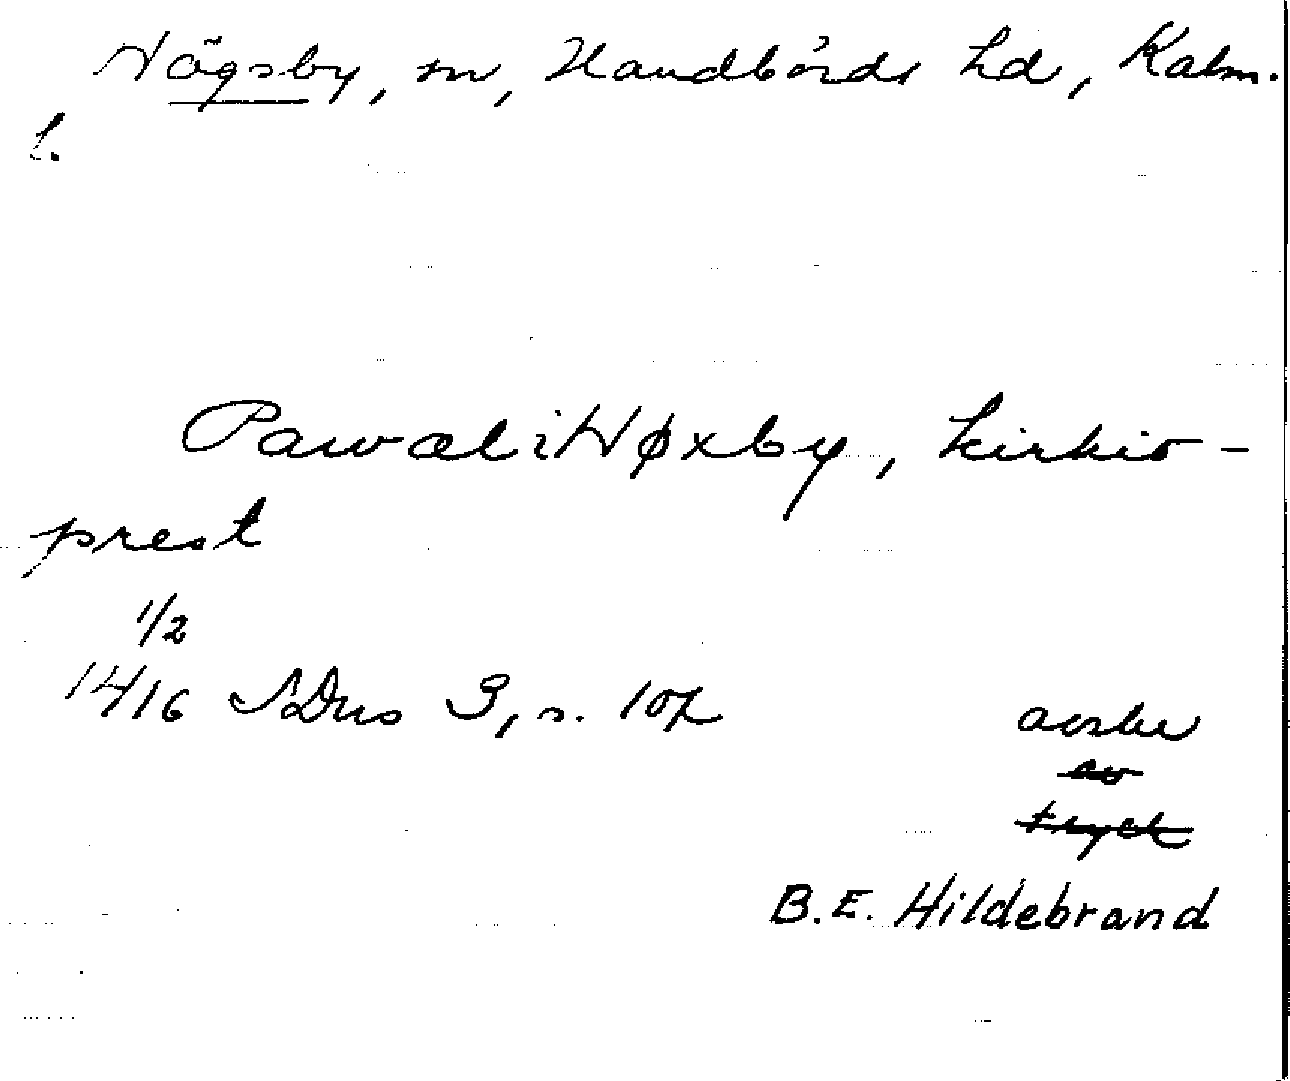 Högsby, sn, Handbörds hd, Kalm.
l.
Pawæl i Høxby, kirkio-
prest
1/2
1416 SDns 3, s. 107
avskr
av
tryck
B.E. Hildebrand